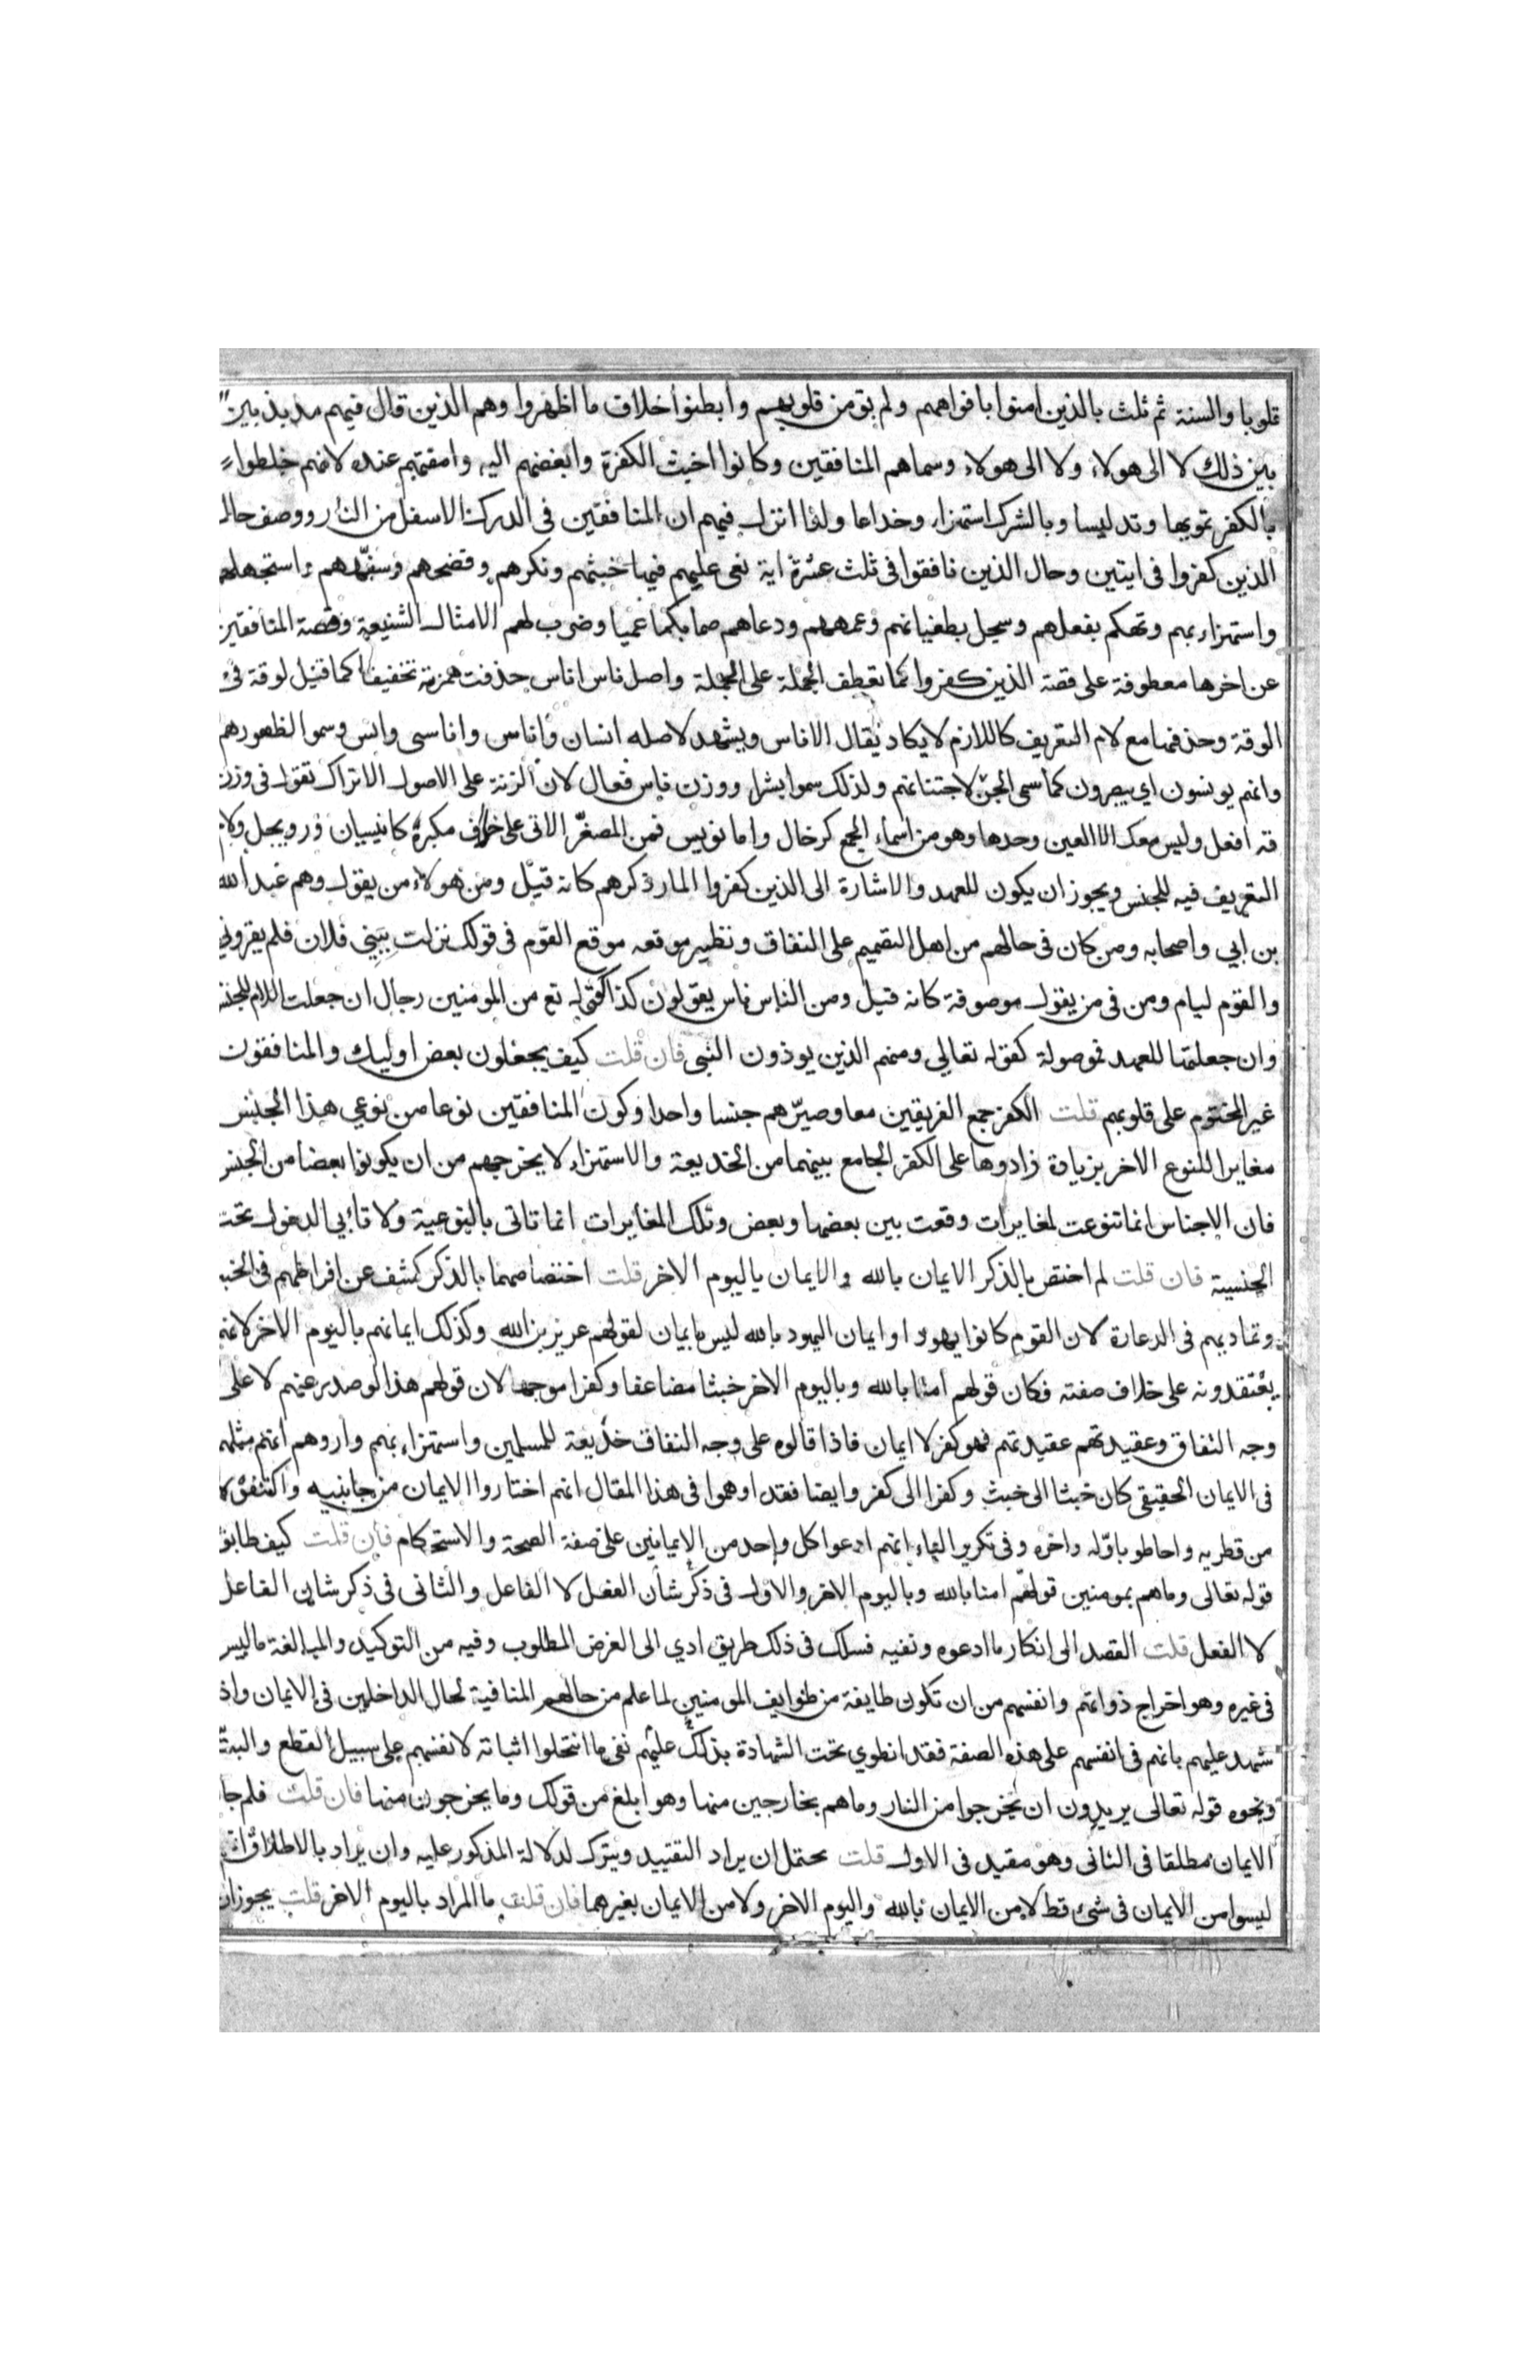 قلوبا والسنة ثم ثلث بالذين امنوا بافواههم ولم تؤمن قلوبهم وابطنوا خلاف ما اظهروا وهم الذين قال فيهم مذبذبين
بين ذلك لا الى هولاء ولا الى هولاء وسماهم المنافقين وكانوا اخبث الكفرة وابغضهم اليه وامقتهم عنده لانهم خلطوا
بالكفر تمويها وتدليسا وبالشرك استهزاء وخداعا ولذا انزل فيهم ان المنافقين فى الدرك الاسفل من النار ووصف حال
الذين كفروا فى ايتين وحال الذين نافقوا فى ثلث عشرة اية نعى عليهم فيها خبثهم ونكرهم وفضحهم وسفههم واستجهلهم
واستهزاء بهم وتهكم بفعلهم وسجل بطغيانهم وعمههم ودعاهم صما بكما عميا وضرب لهم الامثال الشنيعة وقصة المنافقين
عن اخرها معطوفة على قصة الذين كفروا كما تعطف الجملة على الجملة واصل ناس اناس حذفت همزته تخفيفا كما قيل لوقة فى
الوقة وحذفها مع لام التعريف كاللازم لا يكاد يقال الاناس ويشهد لاصله انسان واناس واناسى وانس وسموا لظهورهم
وانهم يونسون اي يبصرون كما سمى الجن لاجتنانهم ولذلك سموا بشرا ووزن ناس فعال لان الزنة على الاصول الا تراك تقول فى وزن
قه افعل وليس معك الا العين وحدها وهو من اسماء الجمع كرخال واما نويس فمن المصغر الاتى على خلاف مكبره كانيسيان ورويجل ولام
التعريف فيه للجنس ويجوز ان يكون للعهد والاشارة الى الذين كفروا المار ذكرهم كانه قيل ومن هولاء من يقول وهم عبد الله
بن ابي واصحابه ومن كان فى حالهم من اهل التصميم على النفاق ونظير موقعه موقع القوم فى قولك نزلت ببني فلان فلم يقروني
والقوم ليام ومن فى من يقول موصوفة كانه قيل ومن الناس ناس يقولون كذا كقوله تع من المومنين رجال ان جعلت اللام للجنس
وان جعلتها للعهد فموصولة كقوله تعالي ومنهم الذين يوذون النبى فان قلت كيف يجعلون بعض اوليك والمنافقون
غير المختوم على قلوبهم قلت الكفر جمع الفريقين معا وصيرهم جنسا واحدا وكون المنافقين نوعا من نوعي هذا الجنس
مغايرا للنوع الاخر بزيادة زادوها على الكفر الجامع بينهما من الخديعة والاستهزاء لا يخرجهم من ان يكونوا بعضا من الجنس
فان الاجناس انما تنوعت لمغايرات وقعت بين بعضها وبعض وتلك المغايرات انما تاتى بالنوعية ولا تأبي الدخول تحت
الجنسية فان قلت لم اختص بالذكر الايمان بالله والايمان باليوم الاخر قلت اختصاصهما بالذكر كشف عن افراطهم فى الخبث
وتماديهم فى الدعارة لان القوم كانوا يهودا وايمان اليهود بالله ليس بايمان لقولهم عزير بن الله وكذلك ايمانهم باليوم الاخر لانهم
يعتقدونه على خلاف صفته فكان قولهم امنا بالله وباليوم الاخر خبثا مضاعفا وكفرا موجها لان قولهم هذا لو صدر عنهم لا على
وجه النفاق وعقيدتهم عقيدتهم فهو كفر لا ايمان فاذا قالوه على وجه النفاق خديعة للمسلمين واستهزاء بهم واروهم انهم مثلهم
فى الايمان الحقيقى كان خبثا الى خبث وكفرا الى كفر وايضا فقد اوهموا فى هذا المقال انهم اختاروا الايمان من جانبيه واكتنفوه
من قطريه واحاطو باوله واخره وفى تكرير الباء انهم ادعوا كل واحد من الايمانين على صفة الصحة والاستحكام فان قلت كيف طابق
قوله تعالى وماهم بمومنين قولهم امنا بالله وباليوم الاخر والاول فى ذكر شأن الفعل لا الفاعل والثانى فى ذكر شان الفاعل
لا الفعل قلت القصد الى انكار ما ادعوه ونفيه فسلك فى ذلك طريق ادي الى الغرض المطلوب وفيه من التوكيد والمبالغة ماليس
فى غيره وهو اخراج ذواتهم وانفسهم من ان تكون طايفة من طوايف المومنين لما علم من حالهم المنافية لحال الداخلين فى الايمان واذا
شهد عليهم بانهم فى انفسهم على هذه الصفة فقد انطوي تحت الشهادة بذلك عليهم نفى ما انتحلوا اثباته لانفسهم على سبيل القطع والبت
ونحوه قوله تعالى يريدون ان يخرجوا من النار وماهم بخارجين منها وهو ابلغ من قولك وما يخرجون منها فان قلت فلم جا
الايمان مطلقا فى الثانى وهو مقيد فى الاول قلت يحتمل ان يراد التقييد ويترك لدلالة المذكور عليه وان يراد بالاطلاق انهم
ليسوا من الايمان فى شئ قط لا من الايمان بالله واليوم الاخر ولا من الايمان بغيرهما فان قلت ما المراد باليوم الاخر قلت يجوز ان